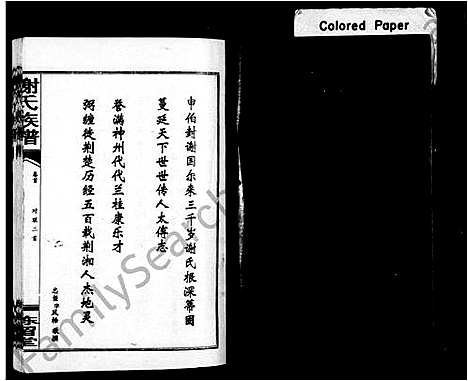 Colored Paper
申伯封谢国尔来三千岁谢氏根深蒂固
蔓延天下世世传人太傅志
誉满神州代代兰桂康乐才
弼缠徙荆楚历经五百载荆湘人杰地灵
谢氏族谱
卷首
对联二首
FamilySearch